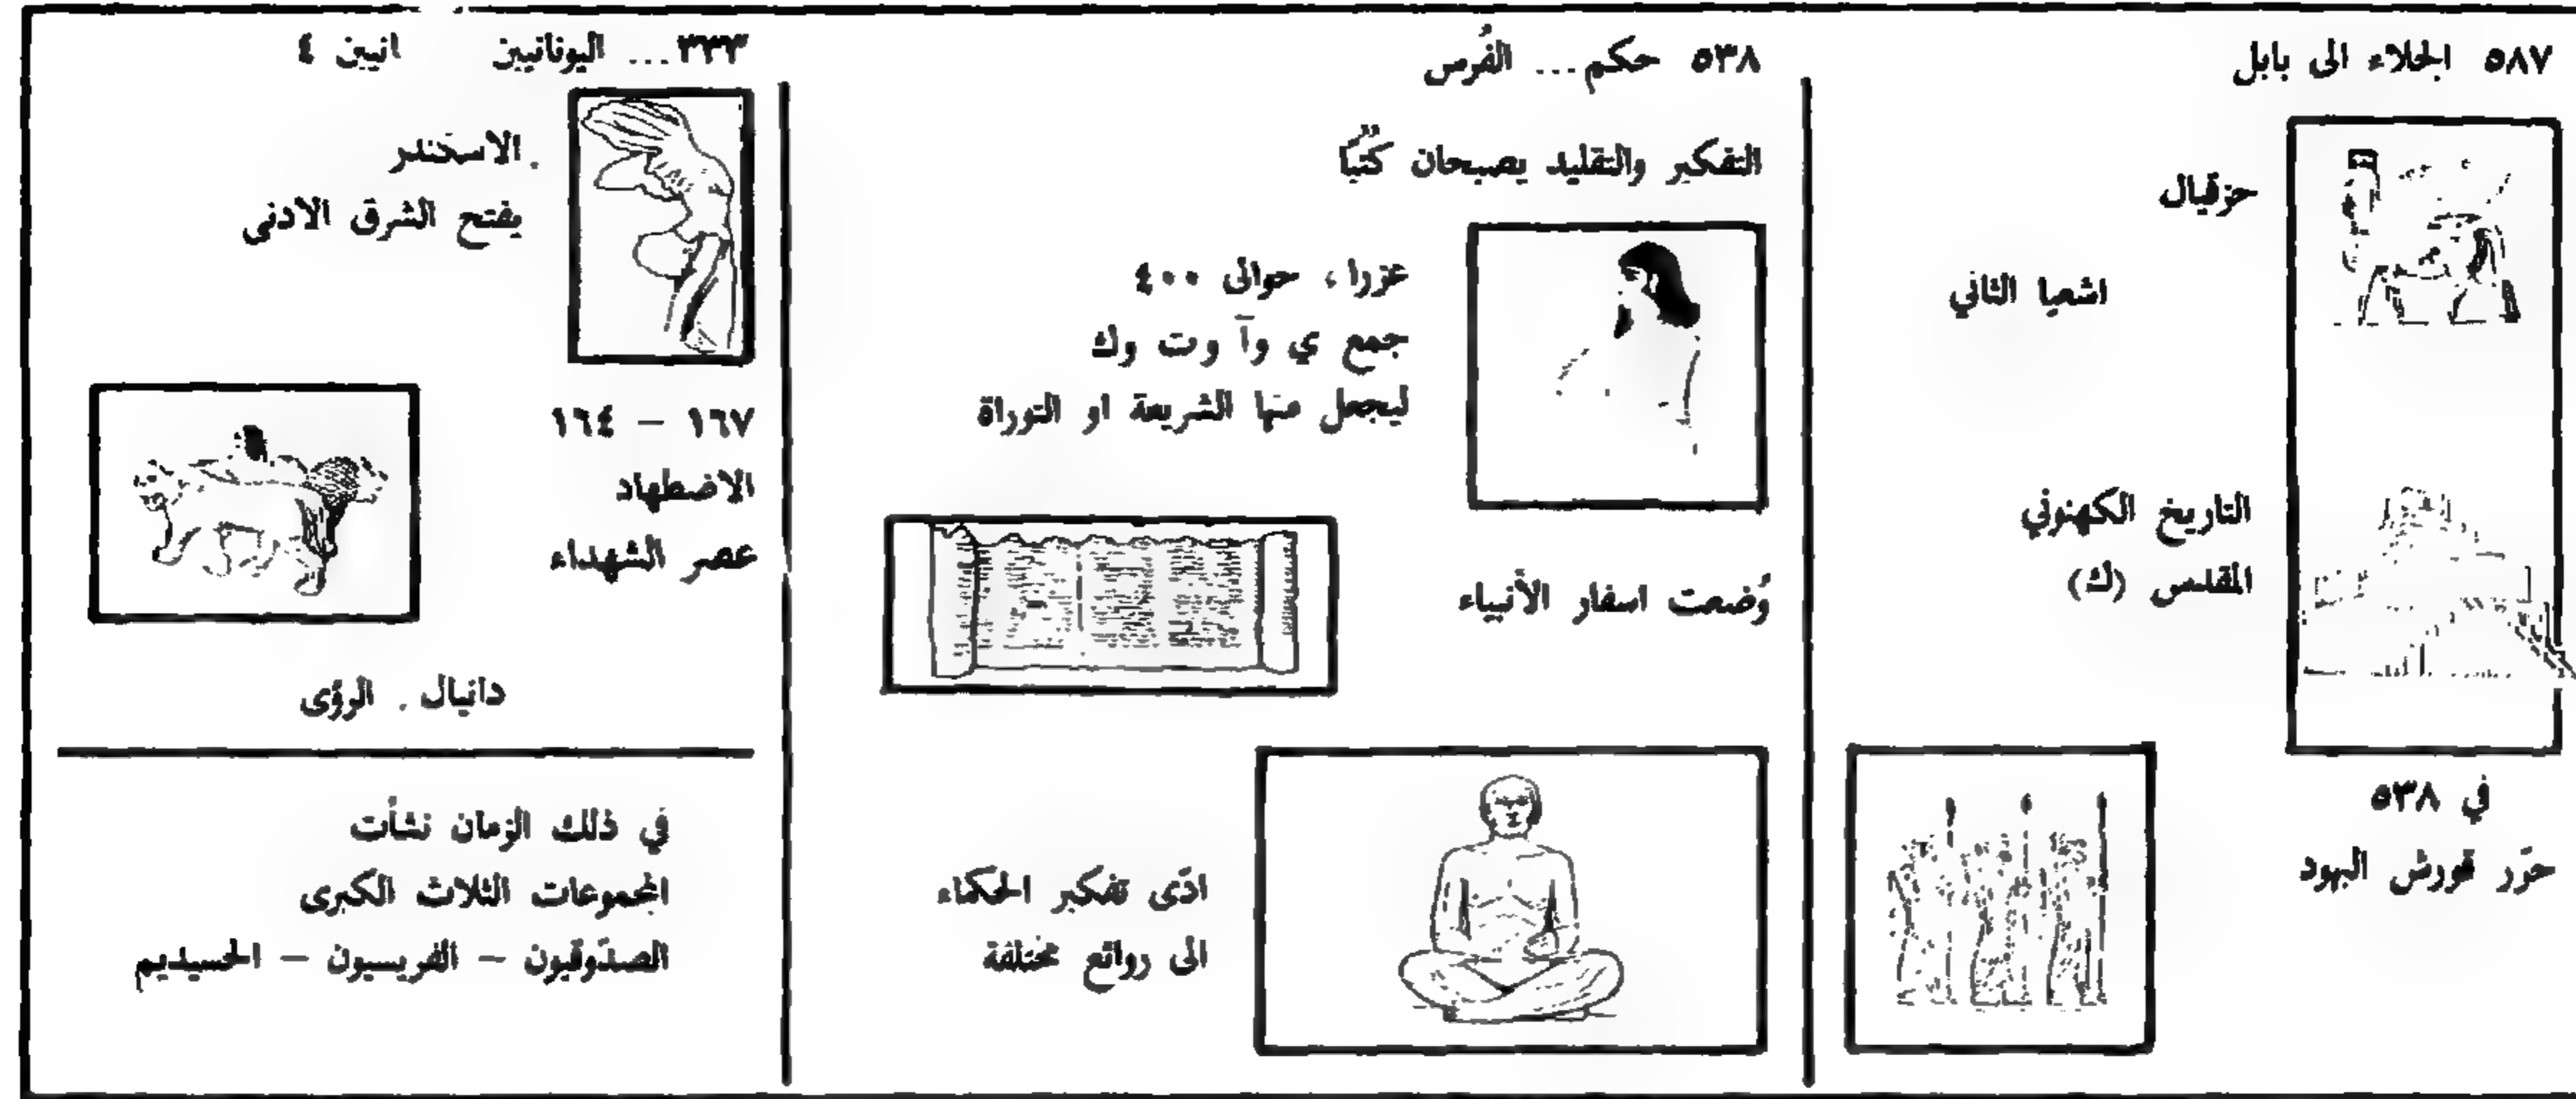 ٥٨٧ الجلاء الى بابل
حزقيال
اشعيا الثاني
التاريخ الكهنوتي
المقدس (ك)
في ٥٣٨
حرّر قورش اليهود
٥٣٨ حكم... الفُرس
التفكير والتقليد يصبحان كتبًا
عزرا، حوالى ٤٠٠
جمع ي وآ وت وك
ليجعل منها الشريعة او التوراة
وُضعت اسفار الأنبياء
ادّى تفكير الحكماء
الى روائع مختلفة
٣٣٣... اليونانيين انيين ٤
الاسكندر
يفتح الشرق الادنى
١٦٧ – ١٦٤
الاضطهاد
عصر الشهداء
دانيال . الرؤى
في ذلك الزمان نشأت
المجموعات الثلاث الكبرى
الصدّوقيون – الفريسيون – الحسيديم